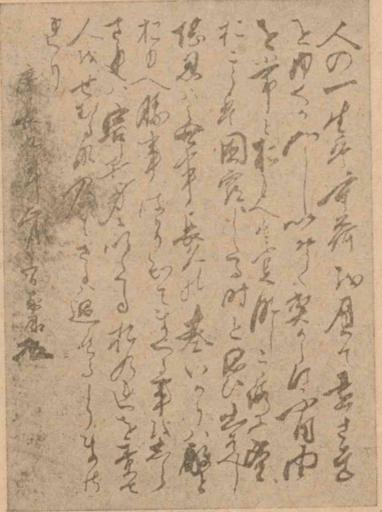 人の一生は重荷を負て遠き道
をゆくか如しいそくへからす不自由
を常とおもへは不足なしこゝろに望
おこらは困窮したる時を思ひ出すへし
堪忍は無事長久の基いかりは敵と
おもへ勝事はかり知てまくる事をしら
されは害其身にいたるおのれを責て
人をせむるな及はさるは過たるよりまさ
れり